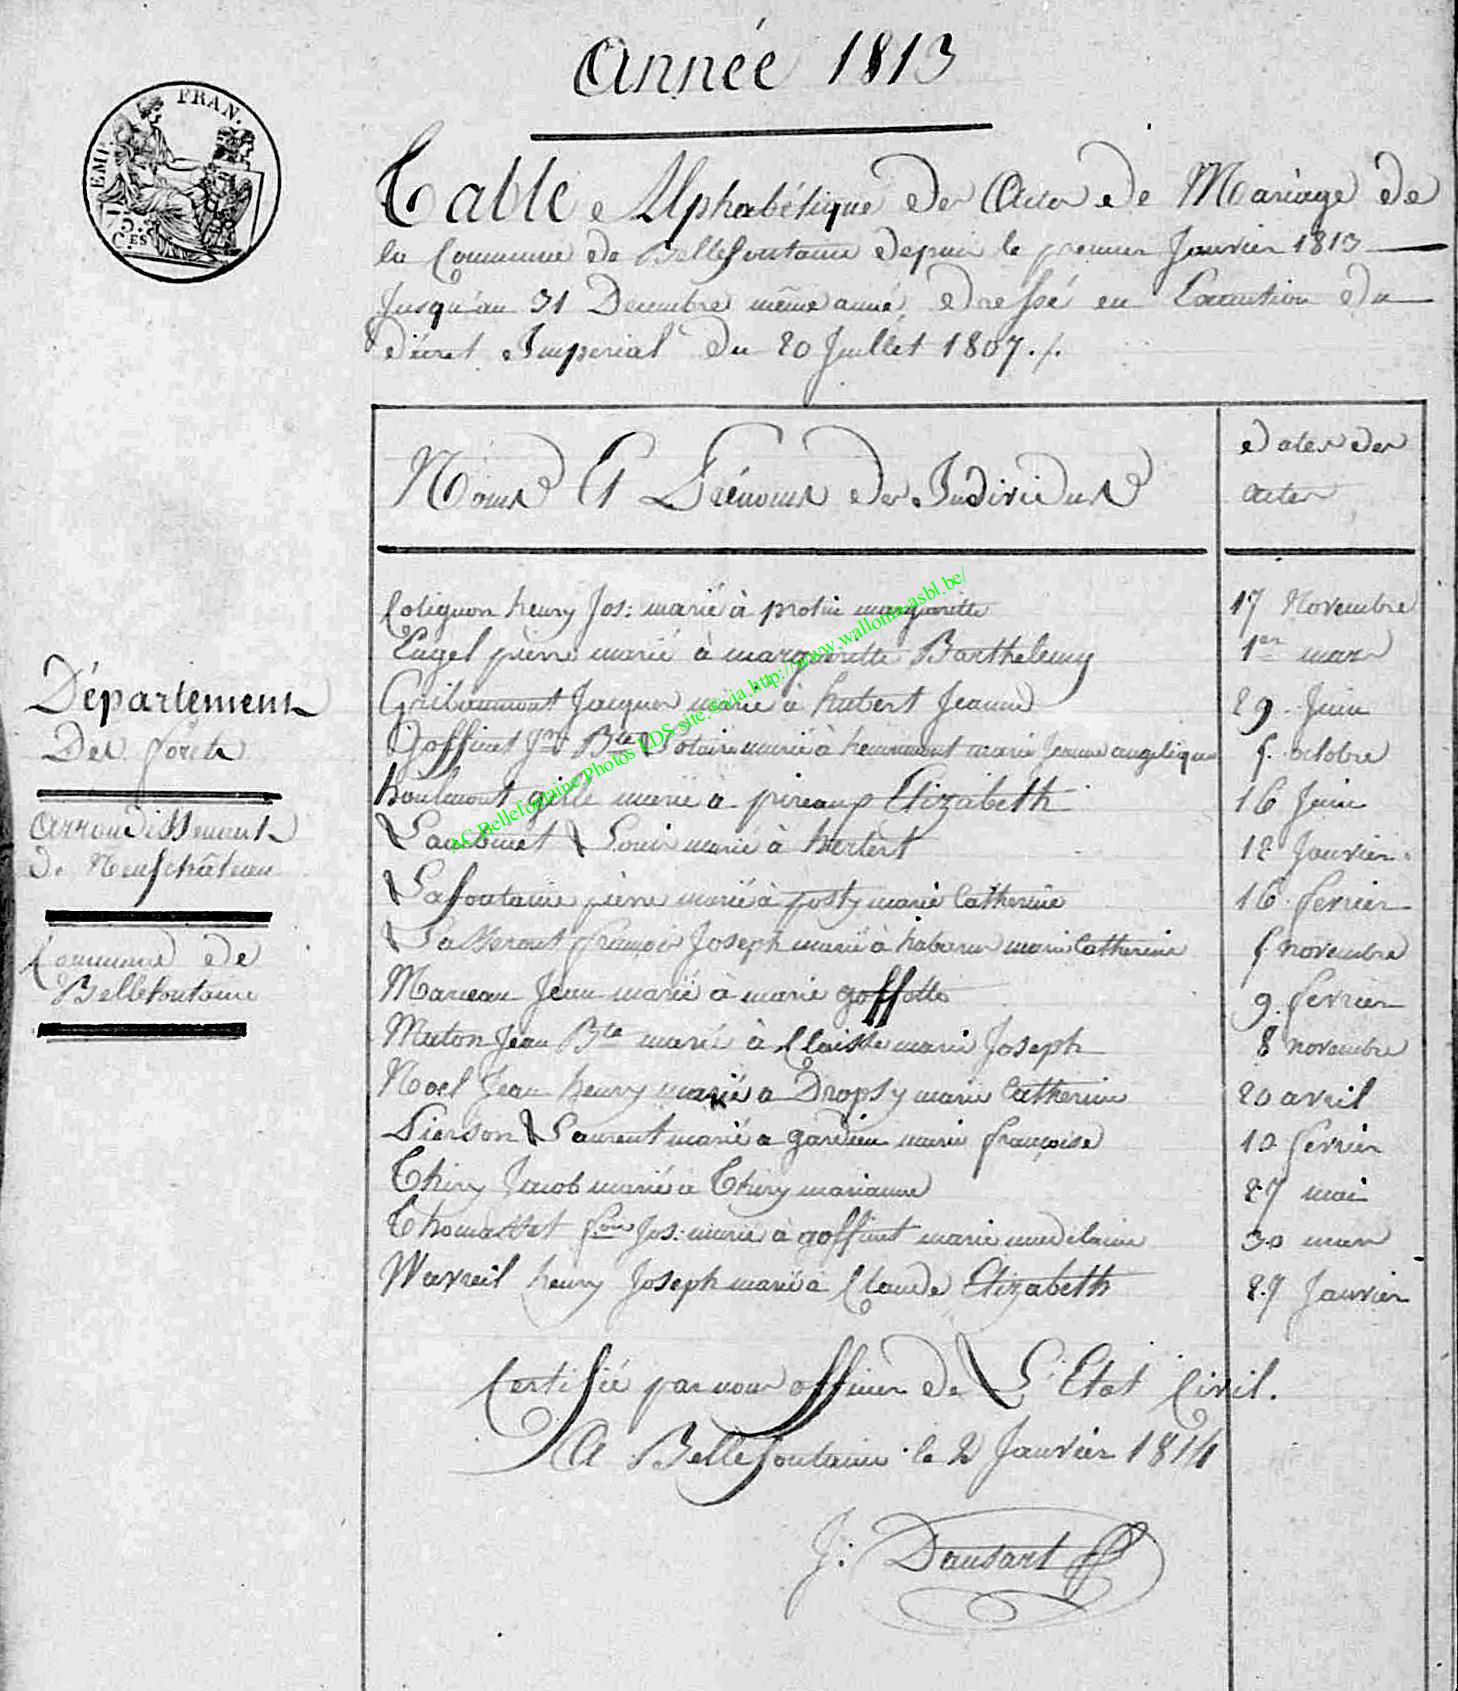 Année 1813
EMP. FRAN.
75.
CES
Table Alphabétique des Actes de Mariage de
la Commune de Bellefontaine depuis le premier Janvier 1813
Jusqu'au 31 Decembre même année, dressé en Execution du
Décret Imperial du 20 Juillet 1807./.
Noms Et Prénoms des Individus
dates des
actes
Colignon henry Jos: marié à protin marguerite 17 Novembre
Engel pierre marié à marguerite Barthelemy 1er mars
Guilaumont Jacques marié à hubert Jeanne 29 Juin
Goffinet Jn Bte marié à henrumont marie Jeanne angelique 5 octobre
houlmont gille marié à Elizabeth 16 Juin
Louis marié à 12 Janvier
Lafontaine pierre marié à posty marie Catherine 16 fevrier
françois Joseph marié à marie Catherine 5 novembre
Marieau Jean marié à marie goffette 9 fevrier
Maton Jean Bte marié à Claisse marie Joseph 8 novembre
Noel Jean henry marié a Dropsy marie Catherine 20 avril
Pierson Laurent marié a gardien marie françoise 10 fevrier
Thiry Jacob marié a Thiry marianne 27 mai
Thomasset fois Jos: marié à goffinet marie madelaine 30 mars
Wavreil henry Joseph marié a Claude Elizabeth 27 Janvier
Certifié par nous officier de L'Etat Civil.
A Bellefontaine le 2 Janvier 1814
J: Dausart
Département
Des forêts
Arrondissement
De Neufchateau
Commune de
Bellefontaine
AC Bellefontaine Photos LDS site via http://www.wallonia-asbl.be/